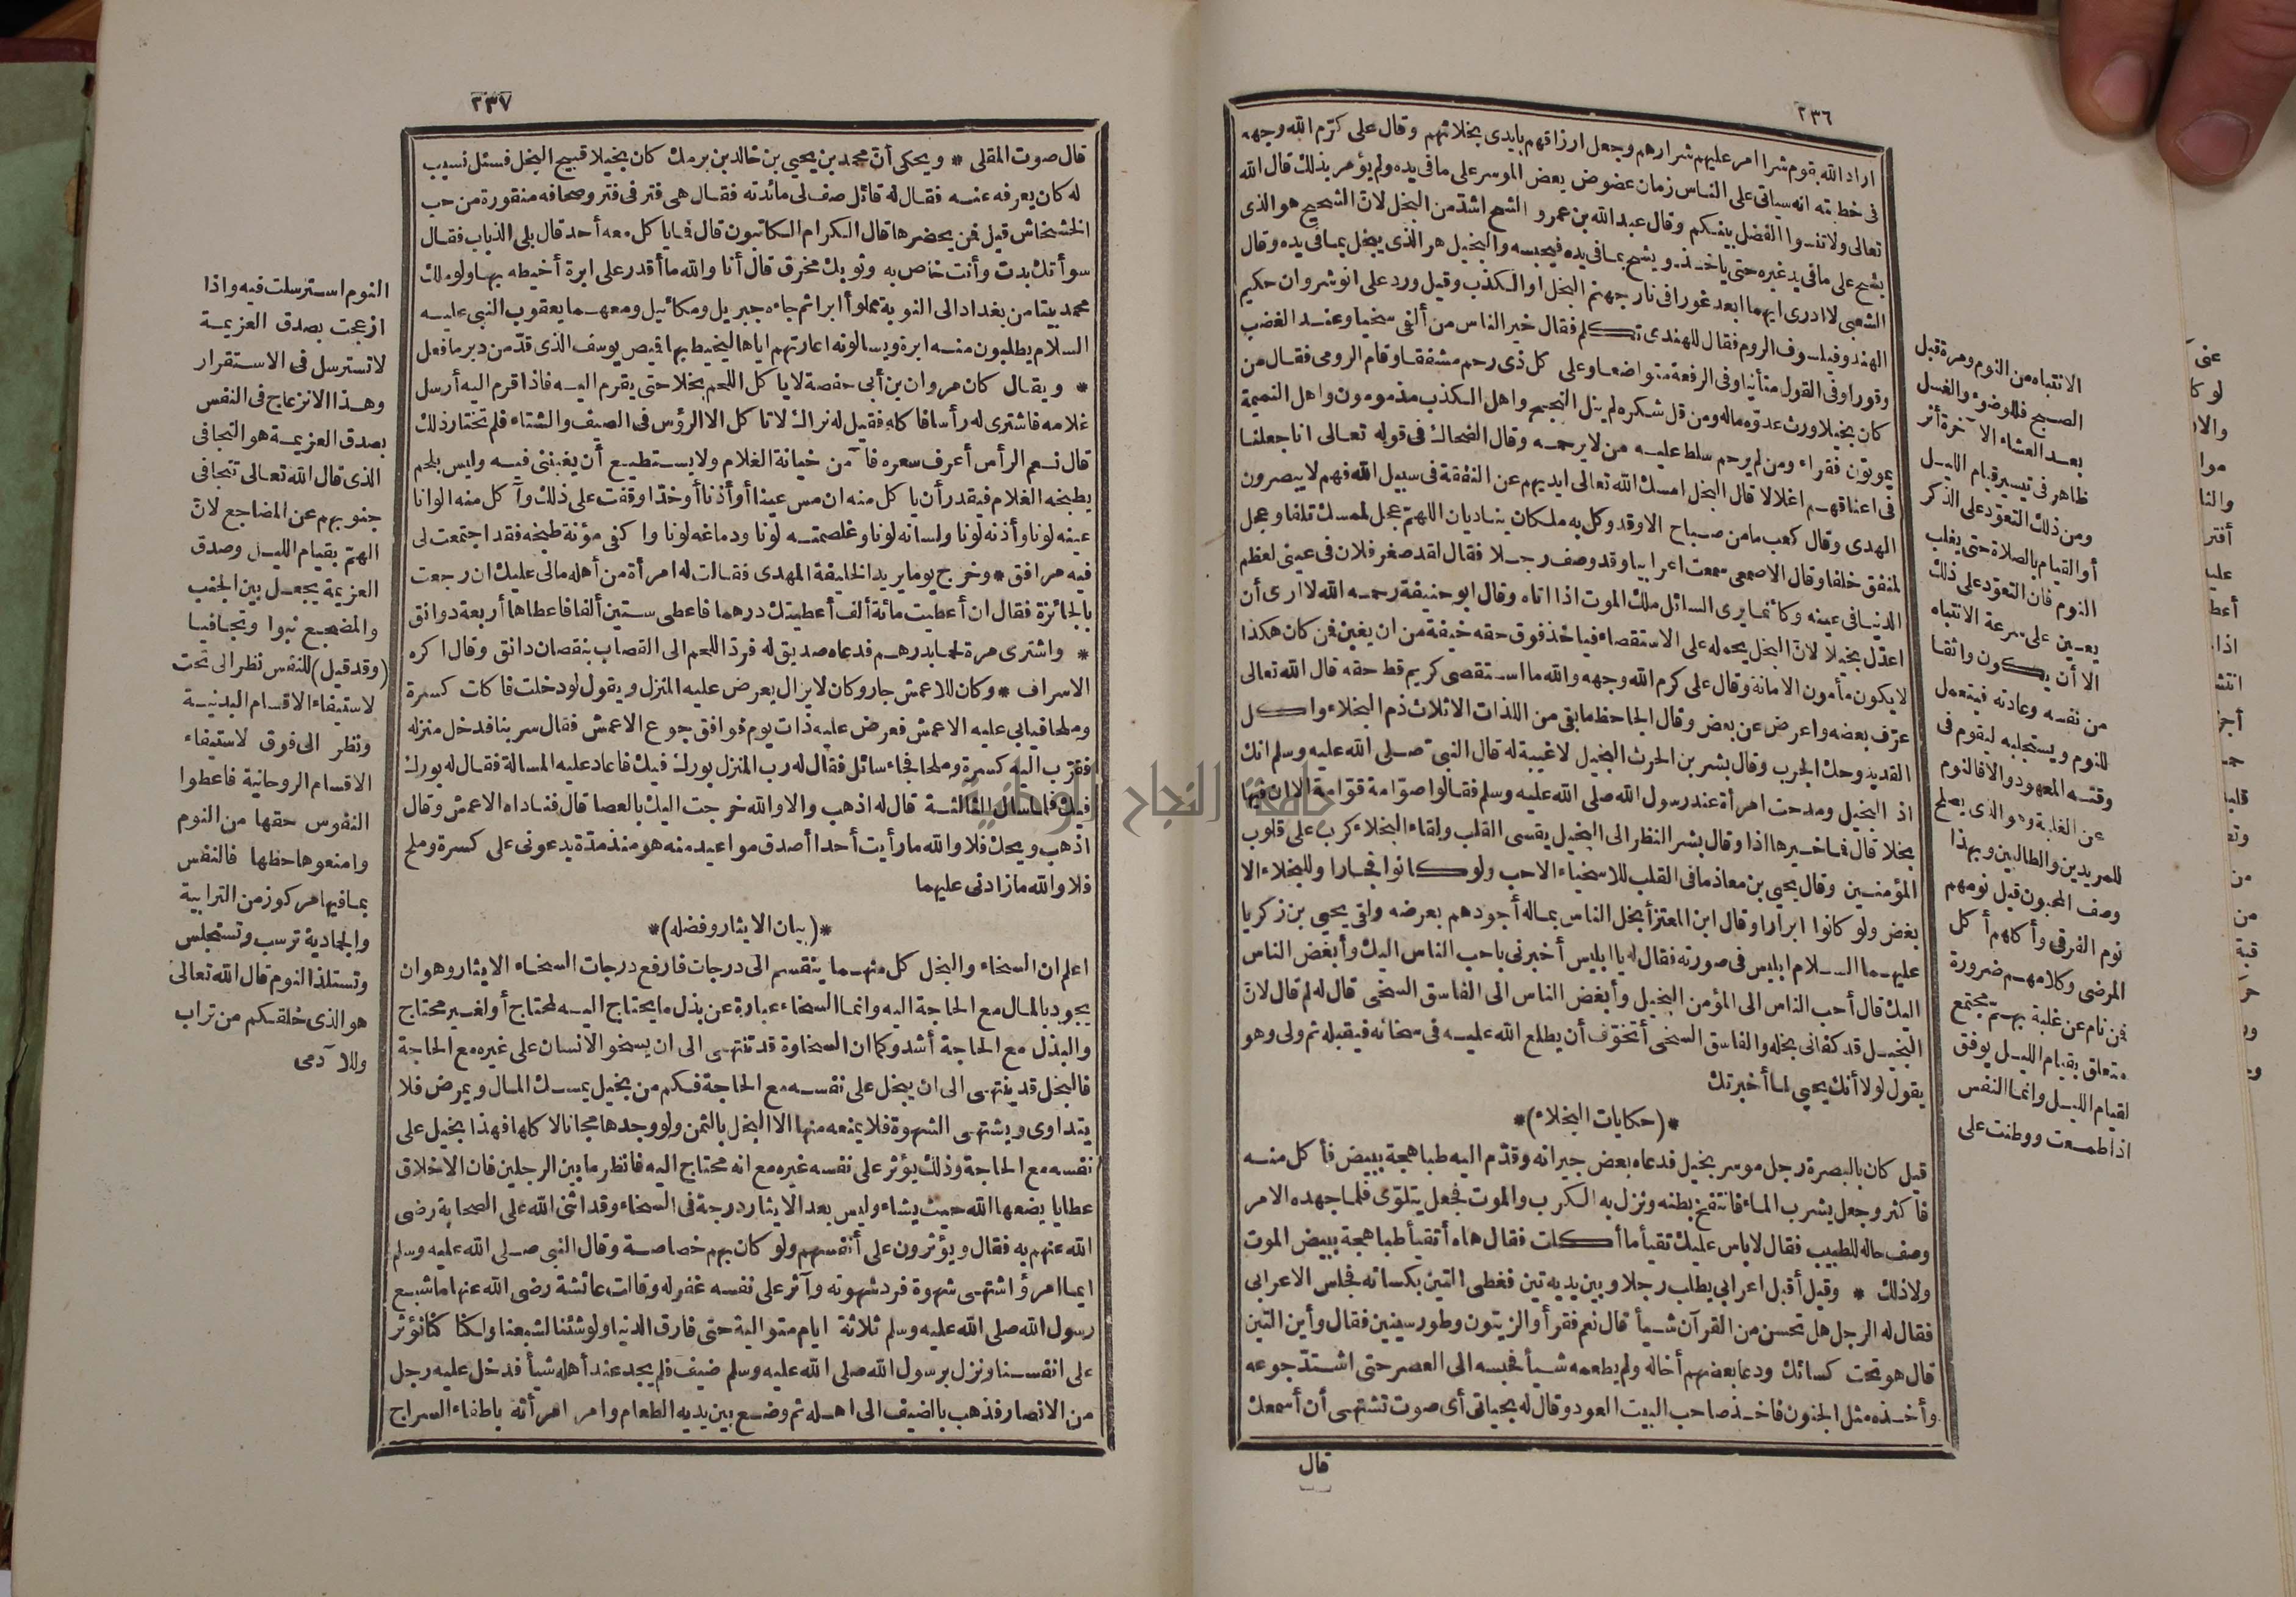 ٢٣٦
اراد الله بقوم شرا امر عليهم شرارهم وجعل ارزاقهم بايدى بخلائهم وقال على كرّم الله وجهه
فى خطبته انه سيأتى على الناس زمان عضوض يعض الموسر على ما فى يده ولم يؤمر بذلك قال الله
تعالى ولا تنسوا الفضل بينكم وقال عبد الله بن عمرو الشح اشدّ من البخل لانّ الشحيح هو الذى
يشح على ما فى يد غيره حتى ياخذه ويشح بما فى يده فيحبسه والبخيل هو الذى يبخل بما فى يده وقال
الشعبى لا ادرى ايهما ابعد غورا فى نار جهنم البخل او الكذب وقيل ورد على انوشروان حكيم
الهند وفيلسوف الروم فقال للهندى تكلم فقال خير الناس من ألفى سخيا وعند الغضب
وقورا وفى القول متأنيا وفى الرفعة متواضعا وعلى كل ذى رحم مشفقا وقام الرومى فقال من
كان بخيلا ورث عدوّه ماله ومن قل شكره لم ينل النجح واهل الكذب مذمومون واهل النميمة
يموتون فقراء ومن لم يرحم سلط عليه من لا يرحمه وقال الضحاك فى قوله تعالى انا جعلنا
فى اعناقهم اغلالا قال البخل امسك الله تعالى ايديهم عن النفقة فى سبيل الله فهم لا يبصرون
الهدى وقال كعب ما من صباح الا وقد وكل به ملكان يناديان اللهمّ عجل لممسك تلفا وعجل
لمنفق خلفا وقال الاصمعى سمعت اعرابيا وقد وصف رجلا فقال لقد صغر فلان فى عينى لعظم
الدنيا فى عينه وكانما يرى السائل ملك الموت اذا اتاه وقال ابو حنيفة رحمه الله لا ارى أن
اعدّل بخيلا لانّ البخل يحمله على الاستقصاء فياخذ فوق حقه خيفة من ان يغبن فمن كان هكذا
لا يكون مأمون الامانة وقال على كرم الله وجهه والله ما استقصى كريم قط حقه قال الله تعالى
عرّف بعضه واعرض عن بعض وقال الجاحظ ما بقى من اللذات الا ثلاث ذم البخلاء واكل
القديد وحك الجرب وقال بشر بن الحرث البخيل لا غيبة له قال النبىّ صلى الله عليه وسلم انك
اذ البخيل ومدحت امرأة عند رسول الله صلى الله عليه وسلم فقالوا صوّامة قوّامة الا ان فيها
بخلا قال فما خيرها اذا وقال بشر النظر الى البخيل يقسى القلب ولقاء البخلاء كرب على قلوب
المؤمنين وقال يحيى بن معاذ ما فى القلب للاسخياء الا حب ولو كانوا فجارا وللبخلاء الا
بغض ولو كانوا ابرارا وقال ابن المعتز أبخل الناس بماله أجودهم بعرضه ولقى يحيى بن زكريا
عليهما السلام ابليس فى صورته فقال له يا ابليس أخبرنى باحب الناس اليك وأبغض الناس
اليك قال أحب الناس الى المؤمن البخيل وأبغض الناس الى الفاسق السخى قال له لم قال لانّ
البخيل قد كفانى بخله والفاسق السخى أتخوّف أن يطلع الله عليه فى سخائه فيقبله ثم ولى وهو
يقول لولا أنك يحيى لما أخبرتك
*(حكايات البخلاء)*
قيل كان بالبصرة رجل موسر بخيل فدعاه بعض جيرانه وقدّم اليه طباهجة ببيض فأكل منه
فاكثر وجعل يشرب الماء فانتفخ بطنه ونزل به الكرب والموت فجعل يتلوّى فلما جهده الامر
وصف حاله للطبيب فقال لا باس عليك تقيأ ما أكلت فقال هاه أتقيأ طباهجة ببيض الموت
ولا ذلك * وقيل أقبل اعرابى يطلب رجلا وبين يديه تين فغطى التين بكسائه فجلس الاعرابى
فقال له الرجل هل تحسن من القرآن شيأ قال نعم فقرأ والزيتون وطور سينين فقال وأين التين
قال هو تحت كسائك ودعا بعضهم أخاله ولم يطعمه شيأ فحبسه الى العصر حتى اشتدّ جوعه
وأخذه مثل الجنون فاخذ صاحب البيت العود وقال له بحياتى أى صوت تشتهى أن أسمعك
قال
الانتباه من النوم ومرة قبل
الصبح فللوضوء والغسل
بعد العشاء الآخرة أثر
ظاهر فى تيسير قيام الليل
ومن ذلك التعوّد على الذكر
أو القيام بالصلاة حتى يغلب
النوم فان التعوّد على ذلك
يعين على سرعة الانتباه
الا أن يكون واثقا
من نفسه وعادته فيتعمل
للنوم ويستجلبه ليقوم فى
وقته المعهود والا فالنوم
عن الغلبة هو الذى يصلح
للمريدين والطالبين وبهذا
وصف المحبون قيل نومهم
نوم الغرقى وأكلهم أكل
المرضى وكلامهم ضرورة
فمن نام عن غلبة بهمّ مجتمع
متعلق بقيام الليل يوفق
لقيام الليل وانما النفس
اذا طمعت ووطنت على
٢٣٧
قال صوت المقلى * ويحكى أنّ محمد بن يحيى بن خالد بن برمك كان بخيلا قبيح البخل فسئل نسيب
له كان يعرفه عنه فقال له قائل صف لى مائدته فقال هى فتر فى فتر وصحافه منقورة من حب
الخشخاش قيل فمن يحضرها قال الكرام الكاتبون قال فما ياكل معه أحد قال بلى الذباب فقال
سوأتك بدت وأنت خاص به وثوبك مخرق قال أنا والله ما أقدر على ابرة أخيطه بها ولو ملك
محمد بيتا من بغداد الى النوبة مملوأ ابرا ثم جاءه جبريل وميكائيل ومعهما يعقوب النبى عليه
السلام يطلبون منه ابرة ويسالونه اعارتهم اياها ليخيط بها قميص يوسف الذى قدّ من دبر ما فعل
* ويقال كان مروان بن أبى حفصة لا ياكل اللحم بخلا حتى يقرم اليه فاذا قرم اليه أرسل
غلامه فاشترى له رأسا فاكله فقيل له نراك لا تاكل الا الرؤس فى الصيف والشتاء فلم تختار ذلك
قال نعم الرأس أعرف سعره فآمن خيانة الغلام ولا يستطيع أن يغبننى فيه وليس بلحم
يطبخه الغلام فيقدر أن ياكل منه ان مس عينا أو أذنا أو خدّا وقفت على ذلك وآكل منه الوانا
عينه لونا وأذنه لونا ولسانه لونا وغلصمته لونا ودماغه لونا واكفى مؤنة طبخه فقد اجتمعت لى
فيه مرافق * وخرج يوما يريد الخليفة المهدى فقالت له امرأة من أهله مالى عليك ان رجعت
بالجائزة فقال ان أعطيت مائة ألف أعطيتك درهما فاعطى ستين ألفا فاعطاها أربعة دوانق
* واشترى مرة لحما بدرهم فدعاه صديق له فردّ اللحم الى القصاب بنقصان دانق وقال اكره
الاسراف * وكان للاعمش جار وكان لا يزال يعرض عليه المنزل ويقول لو دخلت فاكلت كسرة
وملحا فيابى عليه الاعمش فعرض عليه ذات يوم فوافق جوع الاعمش فقال سر بنا فدخل منزله
فقرّب اليه كسرة وملحا فجاء سائل فقال له رب المنزل بورك فيك فاعاد عليه المسالة فقال له بورك
فيك فلما سال الثالثة قال له اذهب والا والله خرجت اليك بالعصا قال فناداه الاعمش وقال
اذهب ويحك فلا والله ما رأيت أحدا أصدق مواعيد منه هو منذ مدّة يدعونى على كسرة وملح
فلا والله ما زادنى عليهما
*(بيان الايثار وفضله)*
اعلم ان السخاء والبخل كل منهما ينقسم الى درجات فارفع درجات السخاء الايثار وهو ان
يجود بالمال مع الحاجة اليه وانما السخاء عبارة عن بذل ما يحتاج اليه لمحتاج أو لغير محتاج
والبذل مع الحاجة أشد وكما ان السخاوة قد تنتهى الى ان يسخو الانسان على غيره مع الحاجة
فالبخل قد ينتهى الى ان يبخل على نفسه مع الحاجة فكم من بخيل يمسك المال ويمرض فلا
يتداوى ويشتهى الشهوة فلا يمنعه منها الا البخل بالثمن ولو وجدها مجانا لاكلها فهذا بخيل على
نفسه مع الحاجة وذلك يؤثر على نفسه غيره مع انه محتاج اليه فانظر ما بين الرجلين فان الاخلاق
عطايا يضعها الله حيث يشاء وليس بعد الايثار درجة فى السخاء وقد اثنى الله على الصحابة رضى
الله عنهم به فقال ويؤثرون على أنفسهم ولو كان بهم خصاصة وقال النبى صلى الله عليه وسلم
ايما امرؤ اشتهى شهوة فرد شهوته وآثر على نفسه غفر له وقالت عائشة رضى الله عنها ما شبع
رسول الله صلى الله عليه وسلم ثلاثة ايام متوالية حتى فارق الدنيا ولو شئنا لشبعنا ولكنّا كنّا نؤثر
على انفسنا ونزل برسول الله صلى الله عليه وسلم ضيف فلم يجد عند أهله شيأ فدخل عليه رجل
من الانصار فذهب بالضيف الى اهله ثم وضع بين يديه الطعام وامر امرأته باطفاء السراج
النوم استرسلت فيه واذا
ازعجت بصدق العزيمة
لا تسترسل فى الاستقرار
وهذا الانزعاج فى النفس
بصدق العزيمة هو التجافى
الذى قال الله تعالى تتجافى
جنوبهم عن المضاجع لانّ
الهمّ بقيام الليل وصدق
العزيمة يجعل بين الجنب
والمضجع نبوا وتجافيا
(وقد قيل) للنفس نظر الى تحت
لاستيفاء الاقسام البدنية
ونظر الى فوق لاستيفاء
الاقسام الروحانية فاعطوا
النفوس حقها من النوم
وامنعوها حظها فالنفس
بما فيها مركوز من الترابية
والجمادية ترسب وتستجلس
وتستلذ النوم قال الله تعالى
هو الذى خلقكم من تراب
وللآدمى
جامعة النجاح الوطنية